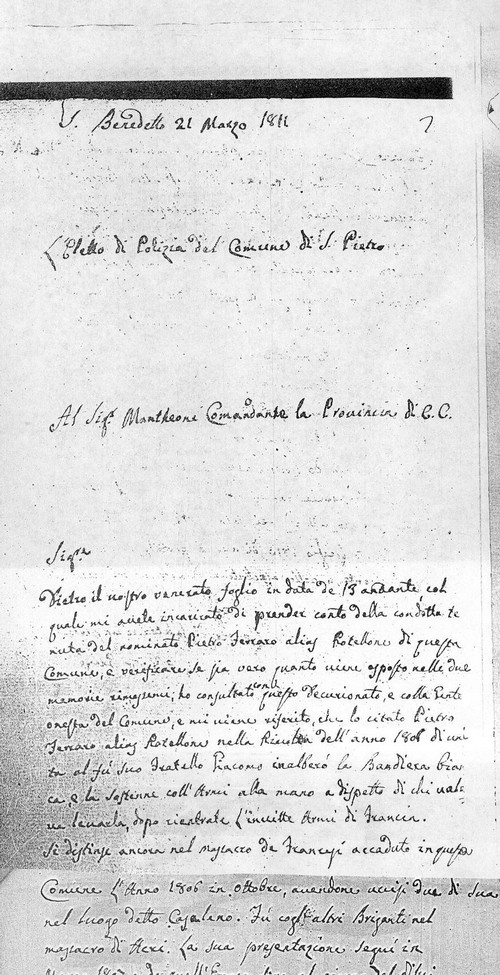 S. Benedetto 21 Marzo 1811
L'Eletto di Polizia del Comune di S. Pietro
Al Sigr. Mantheoné Comandante la Provincia di C. C.
Sigre
Dietro il vostro venerato foglio in data de 13 andante, col
quale mi avete incaricato di prender conto della condotta te
nuta del nominato Pietro Ferraro alias Rotellone di questa
Comune, e verificare se sia vero quanto viene esposto nelle due
memorie rimessemi; ho consultato con questo Decurionato, e colla Gente
onesta del Comune, e mi viene riferito, che lo citato Pietro
Ferraro alias Rotellone nella Rivolta dell'anno 1806 di uni
ta al fú suo Fratello Giacomo inalberó la Bandiera bian
ca e la sostenne coll'Armi alla mano a dispetto di chi vole
va levarla, dopo rientrate l'invitte Armi di Francia.
Si distinse ancora nel massacro de Francesi accaduto in questa
Comune l'Anno 1806 in Ottobre, avendone uccisi due di sua
nel luogo detto Fú cogl'altri Briganti nel
massacro di Acri. La sua presentazione seguí in